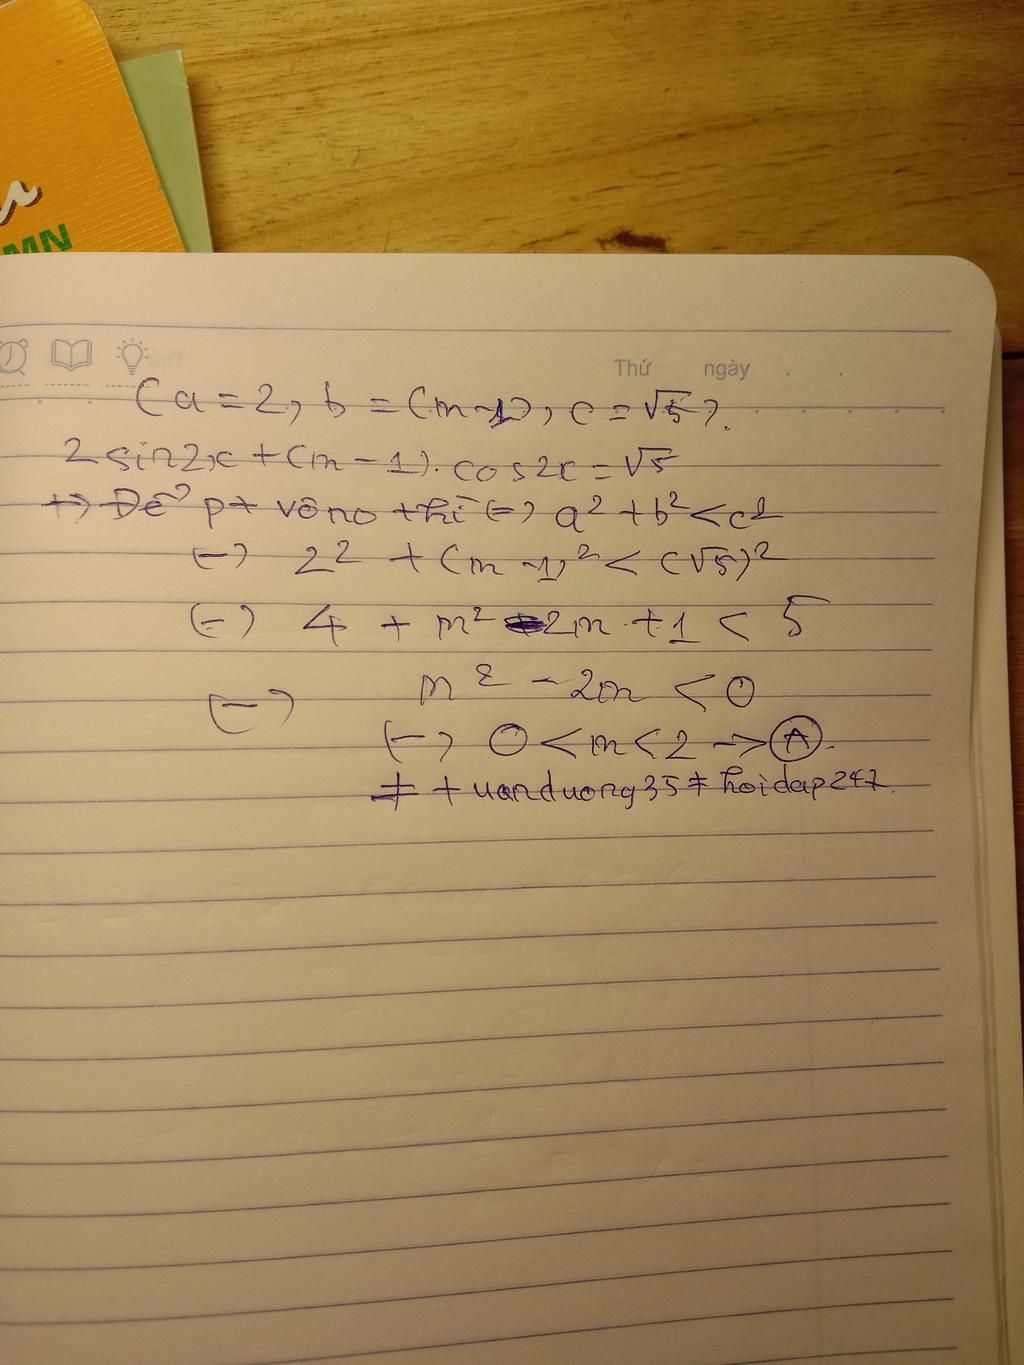 MN
Thứ ngày . .
(a = 2, b = (m-1), c = √5).
2 sin2x + (m - 1). cos2x = √5
+) Để pt vô no thì (=) a² + b² < c²
(=) 2² + (m - 1)² < (√5)²
(=) 4 + m² - 2m + 1 < 5
(=) m² - 2m < 0
(=) 0 < m < 2 -> A.
# tuanduong35 # hoidap247.